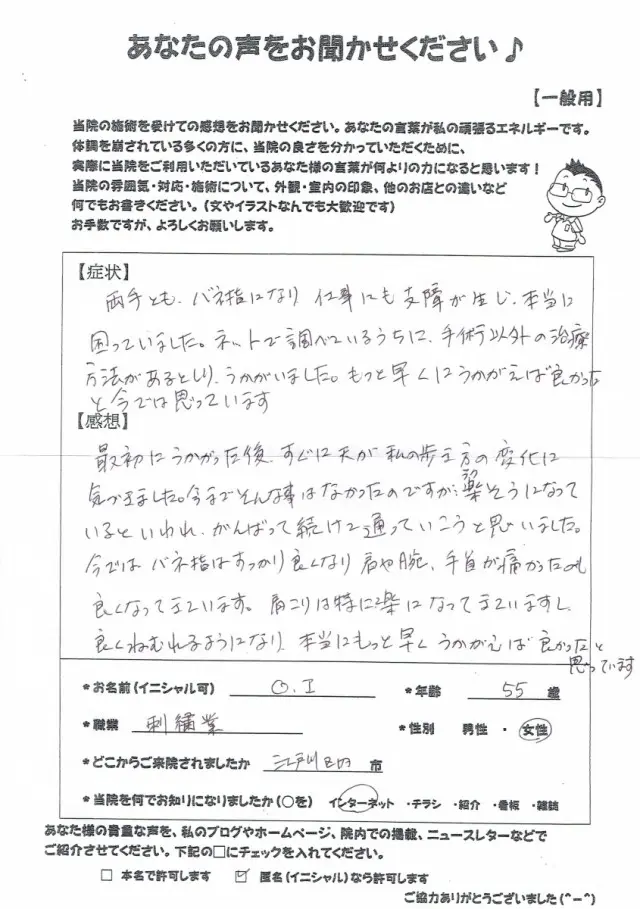 あなたの声をお聞かせください♪
【一般用】
当院の施術を受けての感想をお聞かせください。あなたの言葉が私の頑張るエネルギーです。
体調を崩されている多くの方に、当院の良さを分かっていただくために、
実際に当院をご利用いただいているあなた様の言葉が何よりの力になると思います！
当院の雰囲気・対応・施術について、外観・室内の印象、他のお店との違いなど
何でもお書きください。（文やイラストなんでも大歓迎です）
お手数ですが、よろしくお願いします。
【症状】
両手とも、バネ指になり 仕事にも支障が生じ、本当に
困っていました。ネットで調べているうちに、手術以外の治療
方法があるとしり、うかがいました。もっと早くにうかがえば良かった
と今では思っています
【感想】
最初にうかがった後、すぐに夫が私の歩き方の変化に
気づきました。今までそんな事はなかったのですが、楽そうになって
いるといわれ、がんばって続けて通っていこうと思いました。
今では バネ指はすっかり良くなり 肩や腕、手首が痛かったのも
良くなってきています。肩こりは特に楽になってきていますし、
良くねむれるようになり、本当にもっと早くうかがえば良かったと
思っています
*お名前（イニシャル可） O.I *年齢 55 歳
*職業 刺繍業 *性別 男性 ・ 女性
*どこからご来院されましたか 江戸川区内 市
*当院を何でお知りになりましたか（○を） インターネット ・チラシ ・紹介 ・看板 ・雑誌
あなた様の貴重な声を、私のブログやホームページ、院内での掲載、ニュースレターなどで
ご紹介させてください。下記の□にチェックを入れてください。
□ 本名で許可します ☑ 匿名（イニシャル）なら許可します
ご協力ありがとうございました（^-^）